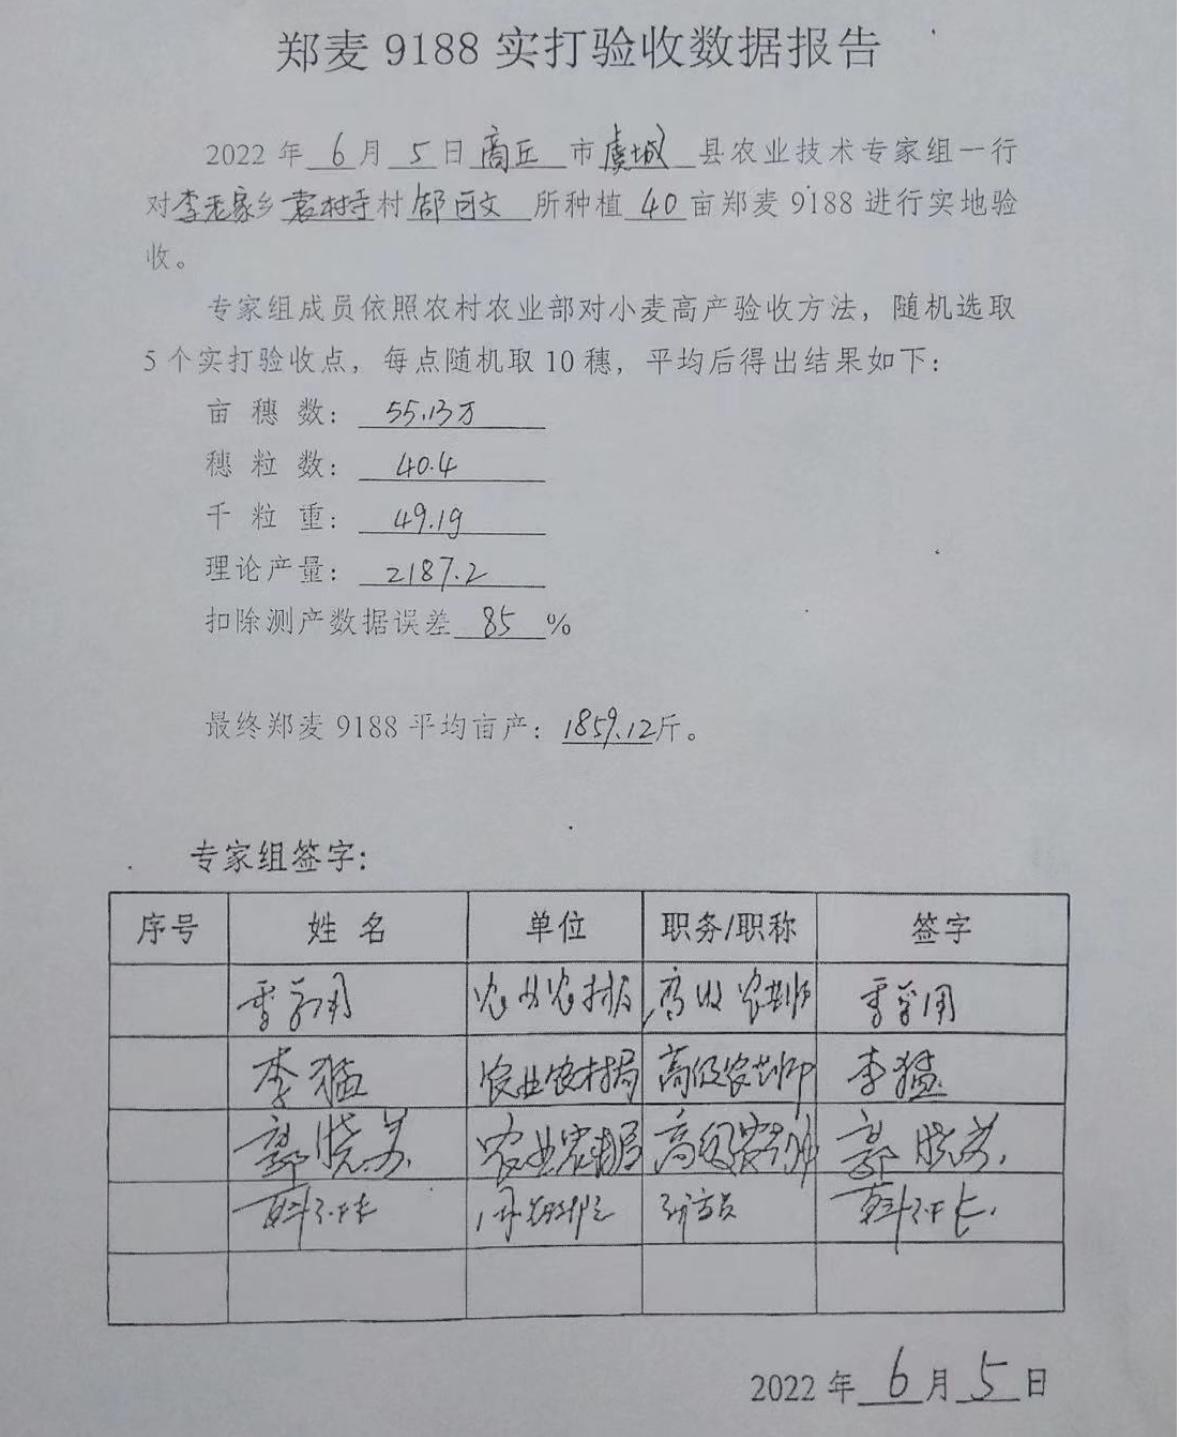 郑麦 9188 实打验收数据报告
2022 年 6 月 5 日 商丘 市 虞城 县农业技术专家组一行
对李老家乡 袁村寺村 郜 文 所种植 40 亩郑麦 9188 进行实地验
收。
专家组成员依照农村农业部对小麦高产验收方法，随机选取
5 个实打验收点，每点随机取 10 穗，平均后得出结果如下：
亩 穗 数： 55.13万
穗 粒 数： 40.4
千 粒 重： 49.1g
理论产量： 2187.2
扣除测产数据误差 85 %
最终郑麦 9188 平均亩产：1859.12斤。
专家组签字：
序号 姓 名 单位 职务/职称 签字
农业农村局 高级农艺师
李猛 农业农村局 高级农艺师 李猛
郭晓苏 农业农村局 高级农艺师 郭晓苏
2022 年 6 月 5 日